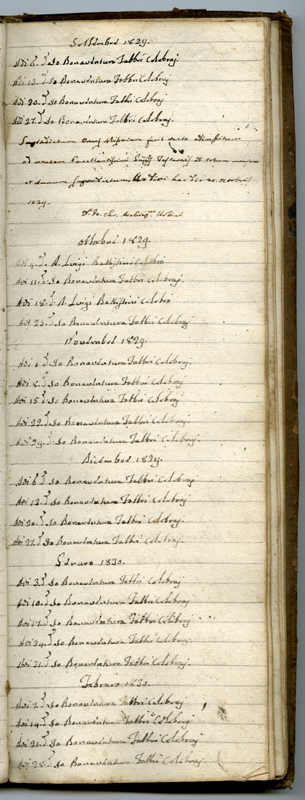 Settembre 1829.
Adì 6. d.o Io Bonaventura Fabbri Celebraj.
Adì 13. d.o Io Bonaventura Fabbri Celebraj
Adì 20. d.o Io Bonaventura Fabbri Celebraj
Adì 27. d.o Io Bonaventura Fabbri Celebraj.
Supradictum
ad mentem
et
1829.
Ottobre 1829.
Luigi Battistini Celebrò
Adì 11. d.o Io Bonaventura Fabbri Celebraj.
Adì 18. d.o Luigi Battistini Celebrò
Adì 25. d.o Io Bonaventura Fabbri Celebraj
Novembre 1829.
Adì 1. d.o Io Bonaventura Fabbri Celebraj
Adì 8. d.o Io Bonaventura Fabbri Celebraj
Adì 15. d.o Io Bonaventura Fabbri Celebraj
Adì 22. d.o Io Bonaventura Fabbri Celebraj
Adì 29. d.o Io Bonaventura Fabbri Celebraj.
Dicembre 1829.
Adì 6. d.o Io Bonaventura Fabbri Celebraj
Adì 13. d.o Io Bonaventura Fabbri Celebraj
Adì 20. d.o Io Bonaventura Fabbri Celebraj.
Adì 27. d.o Io Bonaventura Fabbri Celebraj.
1830.
Adì 3. d.o Io Bonaventura Fabbri Celebraj
Adì 10. d.o Io Bonaventura Fabbri Celebraj
Adì 17. d.o Io Bonaventura Fabbri Celebraj
Adì 24. d.o Io Bonaventura Fabbri Celebraj
Adì 31. d.o Io Bonaventura Fabbri Celebraj.
1830.
Adì 7. d.o Io Bonaventura Fabbri Celebraj
Adì 14. d.o Io Bonaventura Fabbri Celebraj
Adì 21. d.o Io Bonaventura Fabbri Celebraj
Adì 28. d.o Io Bonaventura Fabbri Celebraj.